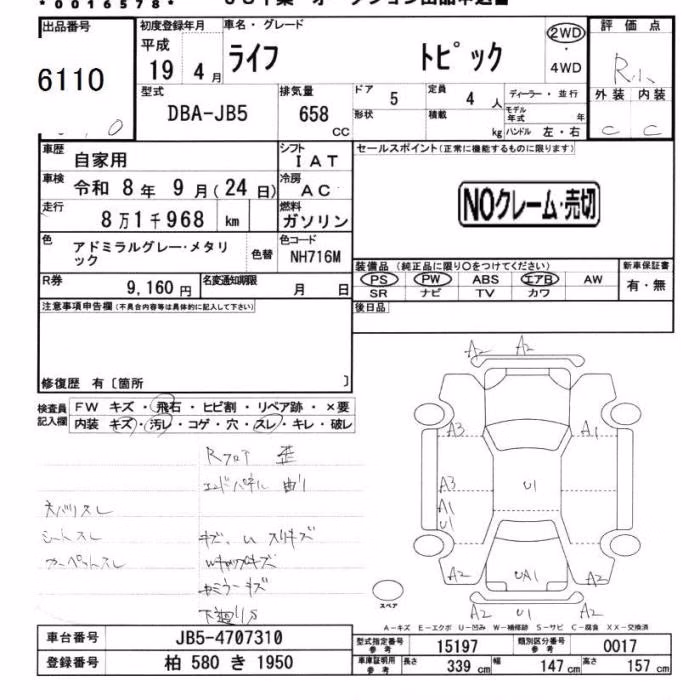 * 0 0 1 6 5 7 8 *
出品番号
6110
初度登録年月
平成
19 年 4 月
車名・グレード
ライフ トピック
2WD
・
4WD
評価点
R
外装 内装
C C
型式
DBA-JB5
排気量
658 CC
ドア 5
形状
定員 4 人
積載 kg
ディーラー・並行
モデル年式 年
ハンドル 左・右
車歴 自家用
シフト IAT
車検 令和 8 年 9 月 (24 日)
冷房 AC
走行 8万1千968 km
燃料 ガソリン
色 アドミラルグレー・メタリック
色替
色コード NH716M
R券 9,160 円
名変通知期限 月 日
セールスポイント(正常に機能するものに限ります)
NOクレーム・売切
装備品 (純正品に限り○をつけてください)
PS PW ABS エアB AW
SR ナビ TV カワ
新車保証書
有・無
後日品
注意事項申告欄(不具合内容等は具体的に記入して下さい)
修復歴 有〔箇所 〕
検査員記入欄
FW キズ・飛石・ヒビ割・リペア跡・×要
内装 キズ・汚レ・コゲ・穴・スレ・キレ・破レ
Rフロア 歪
エンドパネル 曲り
シートスレ
カーペットスレ
下廻りサ
A2 A2
A3 A1
A3
A1
U1
U1
A2 UA1 A2
A2 U1 A2
スペア
A-キズ E-エクボ U-凹み W-補修跡 S-サビ C-腐食 XX-交換済
車台番号 JB5-4707310
登録番号 柏 580 き 1950
型式指定番号 参考 15197
類別区分番号 参考 0017
車庫証明用 参考 長さ 339 cm 幅 147 cm 高さ 157 cm